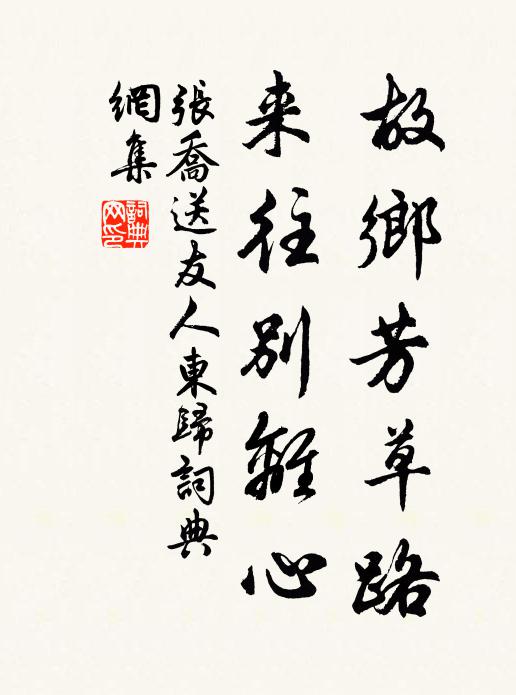 故鄉芳草路
来往別離心
張喬送友人東歸詞典
網集
詞典
网印